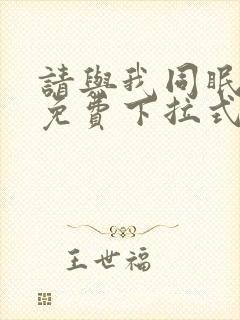 請與我同眠
免費下拉式
王世福